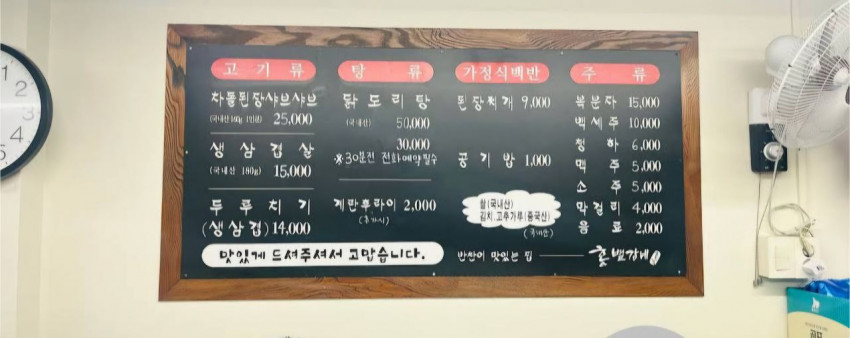 고기류
차돌된장샤브샤브
(국내산160g 1인분) 25,000
생삼겹살
(국내산 180g) 15,000
두루치기
(생삼겹) 14,000
맛있게 드셔주셔서 고맙습니다.
탕류
닭도리탕
(국내산) 50,000
30,000
※30분전 전화예약필수
계란후라이 2,000
(추가시)
가정식백반
된장찌개 9,000
공기밥 1,000
쌀(국내산)
김치.고추가루(중국산)
(국내산)
반찬이 맛있는 집
주류
복분자 15,000
백세주 10,000
청하 6,000
맥주 5,000
소주 5,000
막걸리 4,000
음료 2,000
12
1
2
3
4
5